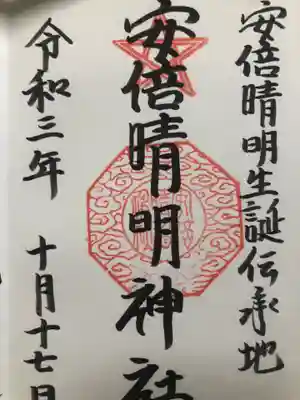 安倍晴明生誕伝承地
安倍晴明神社
令和三年 十月十七日